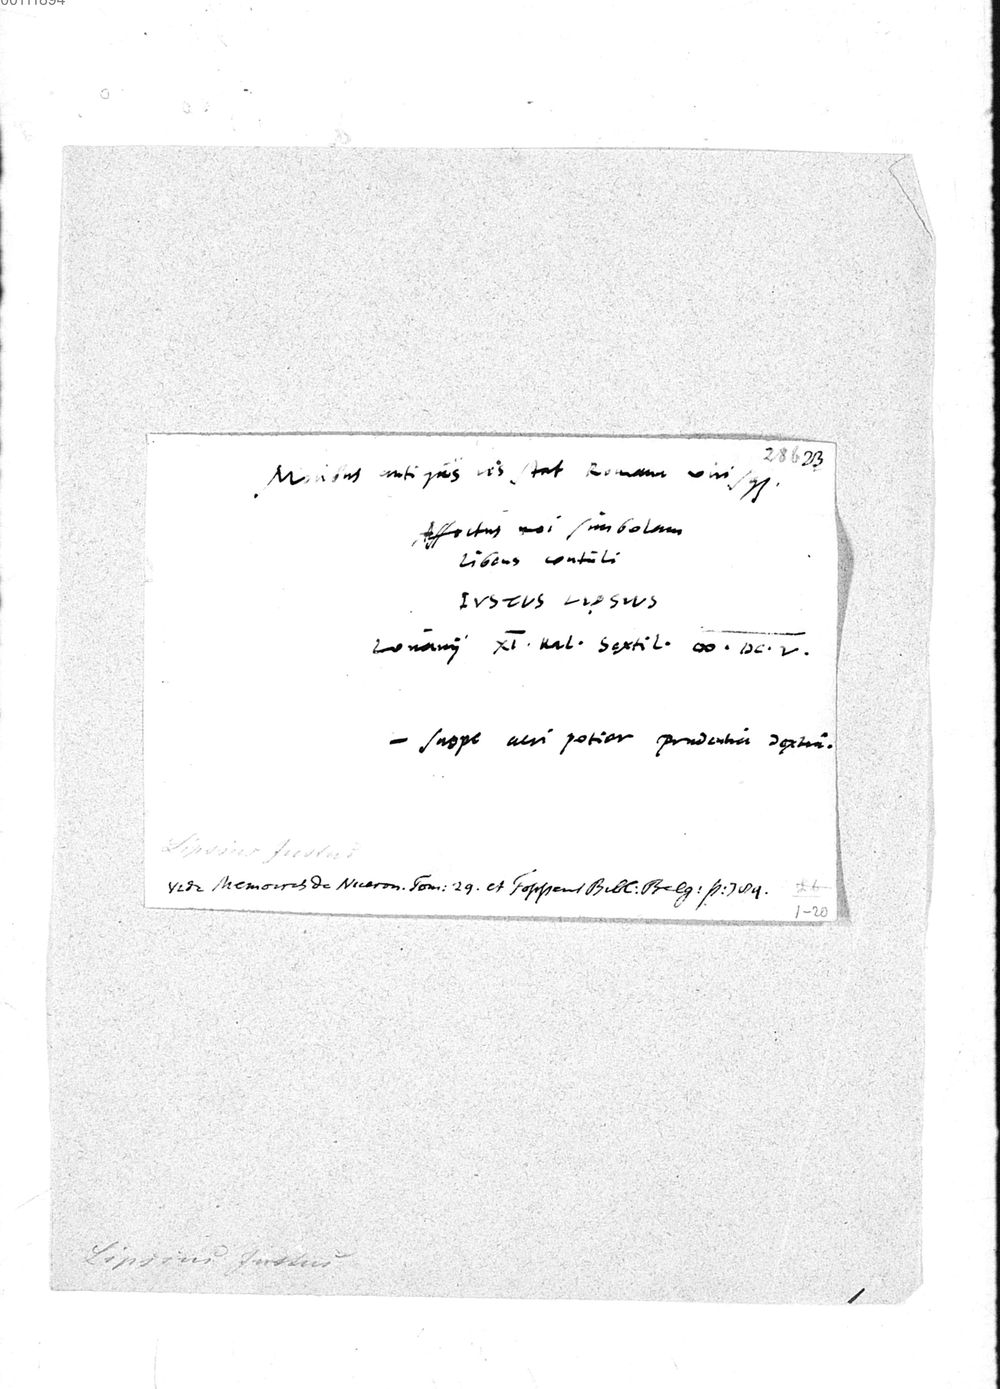 00111894
28623
Moribus antiquis res stat Romana virisq;.
Affectus mei simbolam
Libens contuli
IVSTVS LIPSIUS
Lovanij XI. Kal. Sextil. ∞. DC. V.
– saepe acri potior prudentia dextrâ.
Lipsius Justus
vide Memoires de Niceron. Tom: 29. et Foppens Bibl: Belg: p: 789.
1–20
Lipsius Justus